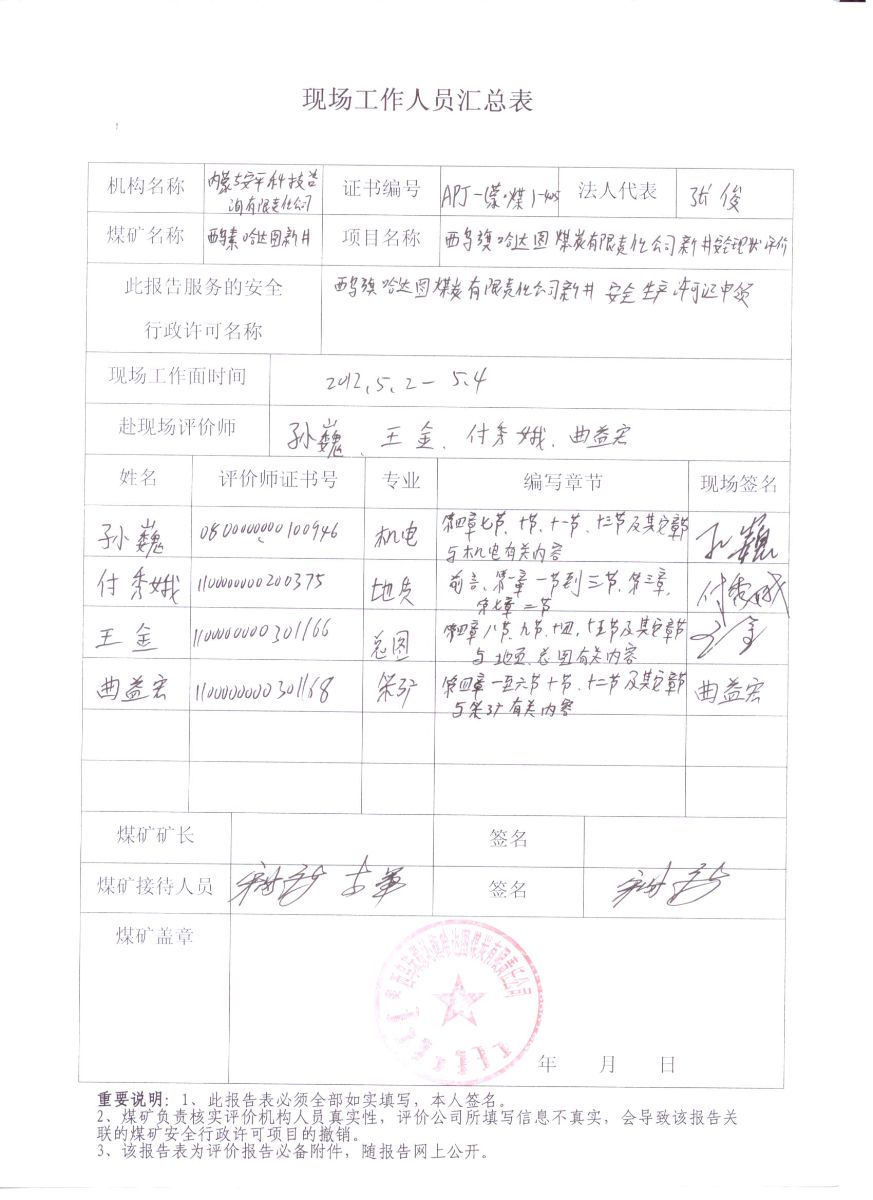 现场工作人员汇总表
机构名称 内蒙古安平科技咨询有限责任公司 证书编号 APJ-(蒙·煤)-405 法人代表 张俊
煤矿名称 哈达图新井 项目名称 西乌旗哈达图煤炭有限责任公司新井安全现状评价
此报告服务的安全
行政许可名称
西乌旗哈达图煤炭有限责任公司新井 安全生产许可证申领
现场工作面时间 2012.5.2-5.4
赴现场评价师 孙巍、王金、付秀娥、曲益宏
姓名 评价师证书号 专业 编写章节 现场签名
孙巍 0800000000100946 机电 第四章七节、十节、十一节、十三节及其它章节
与机电有关内容 孙巍
付秀娥 1100000000200375 地质 前言、第一章一节到三节、第三章、
第七章二节 付秀娥
王金 1100000000301166 总图 第四章八节、九节、十四、十五节及其它章节
与地质、总图有关内容 王金
曲益宏 1100000000301168 采矿 第四章一至六节十节、十二节及其它章节
与采矿有关内容 曲益宏
煤矿矿长 签名
煤矿接待人员 签名
煤矿盖章
哈达图煤炭有限责任公司
年 月 日
重要说明：1、此报告表必须全部如实填写，本人签名。
2、煤矿负责核实评价机构人员真实性，评价公司所填写信息不真实，会导致该报告关
联的煤矿安全行政许可项目的撤销。
3、该报告表为评价报告必备附件，随报告网上公开。